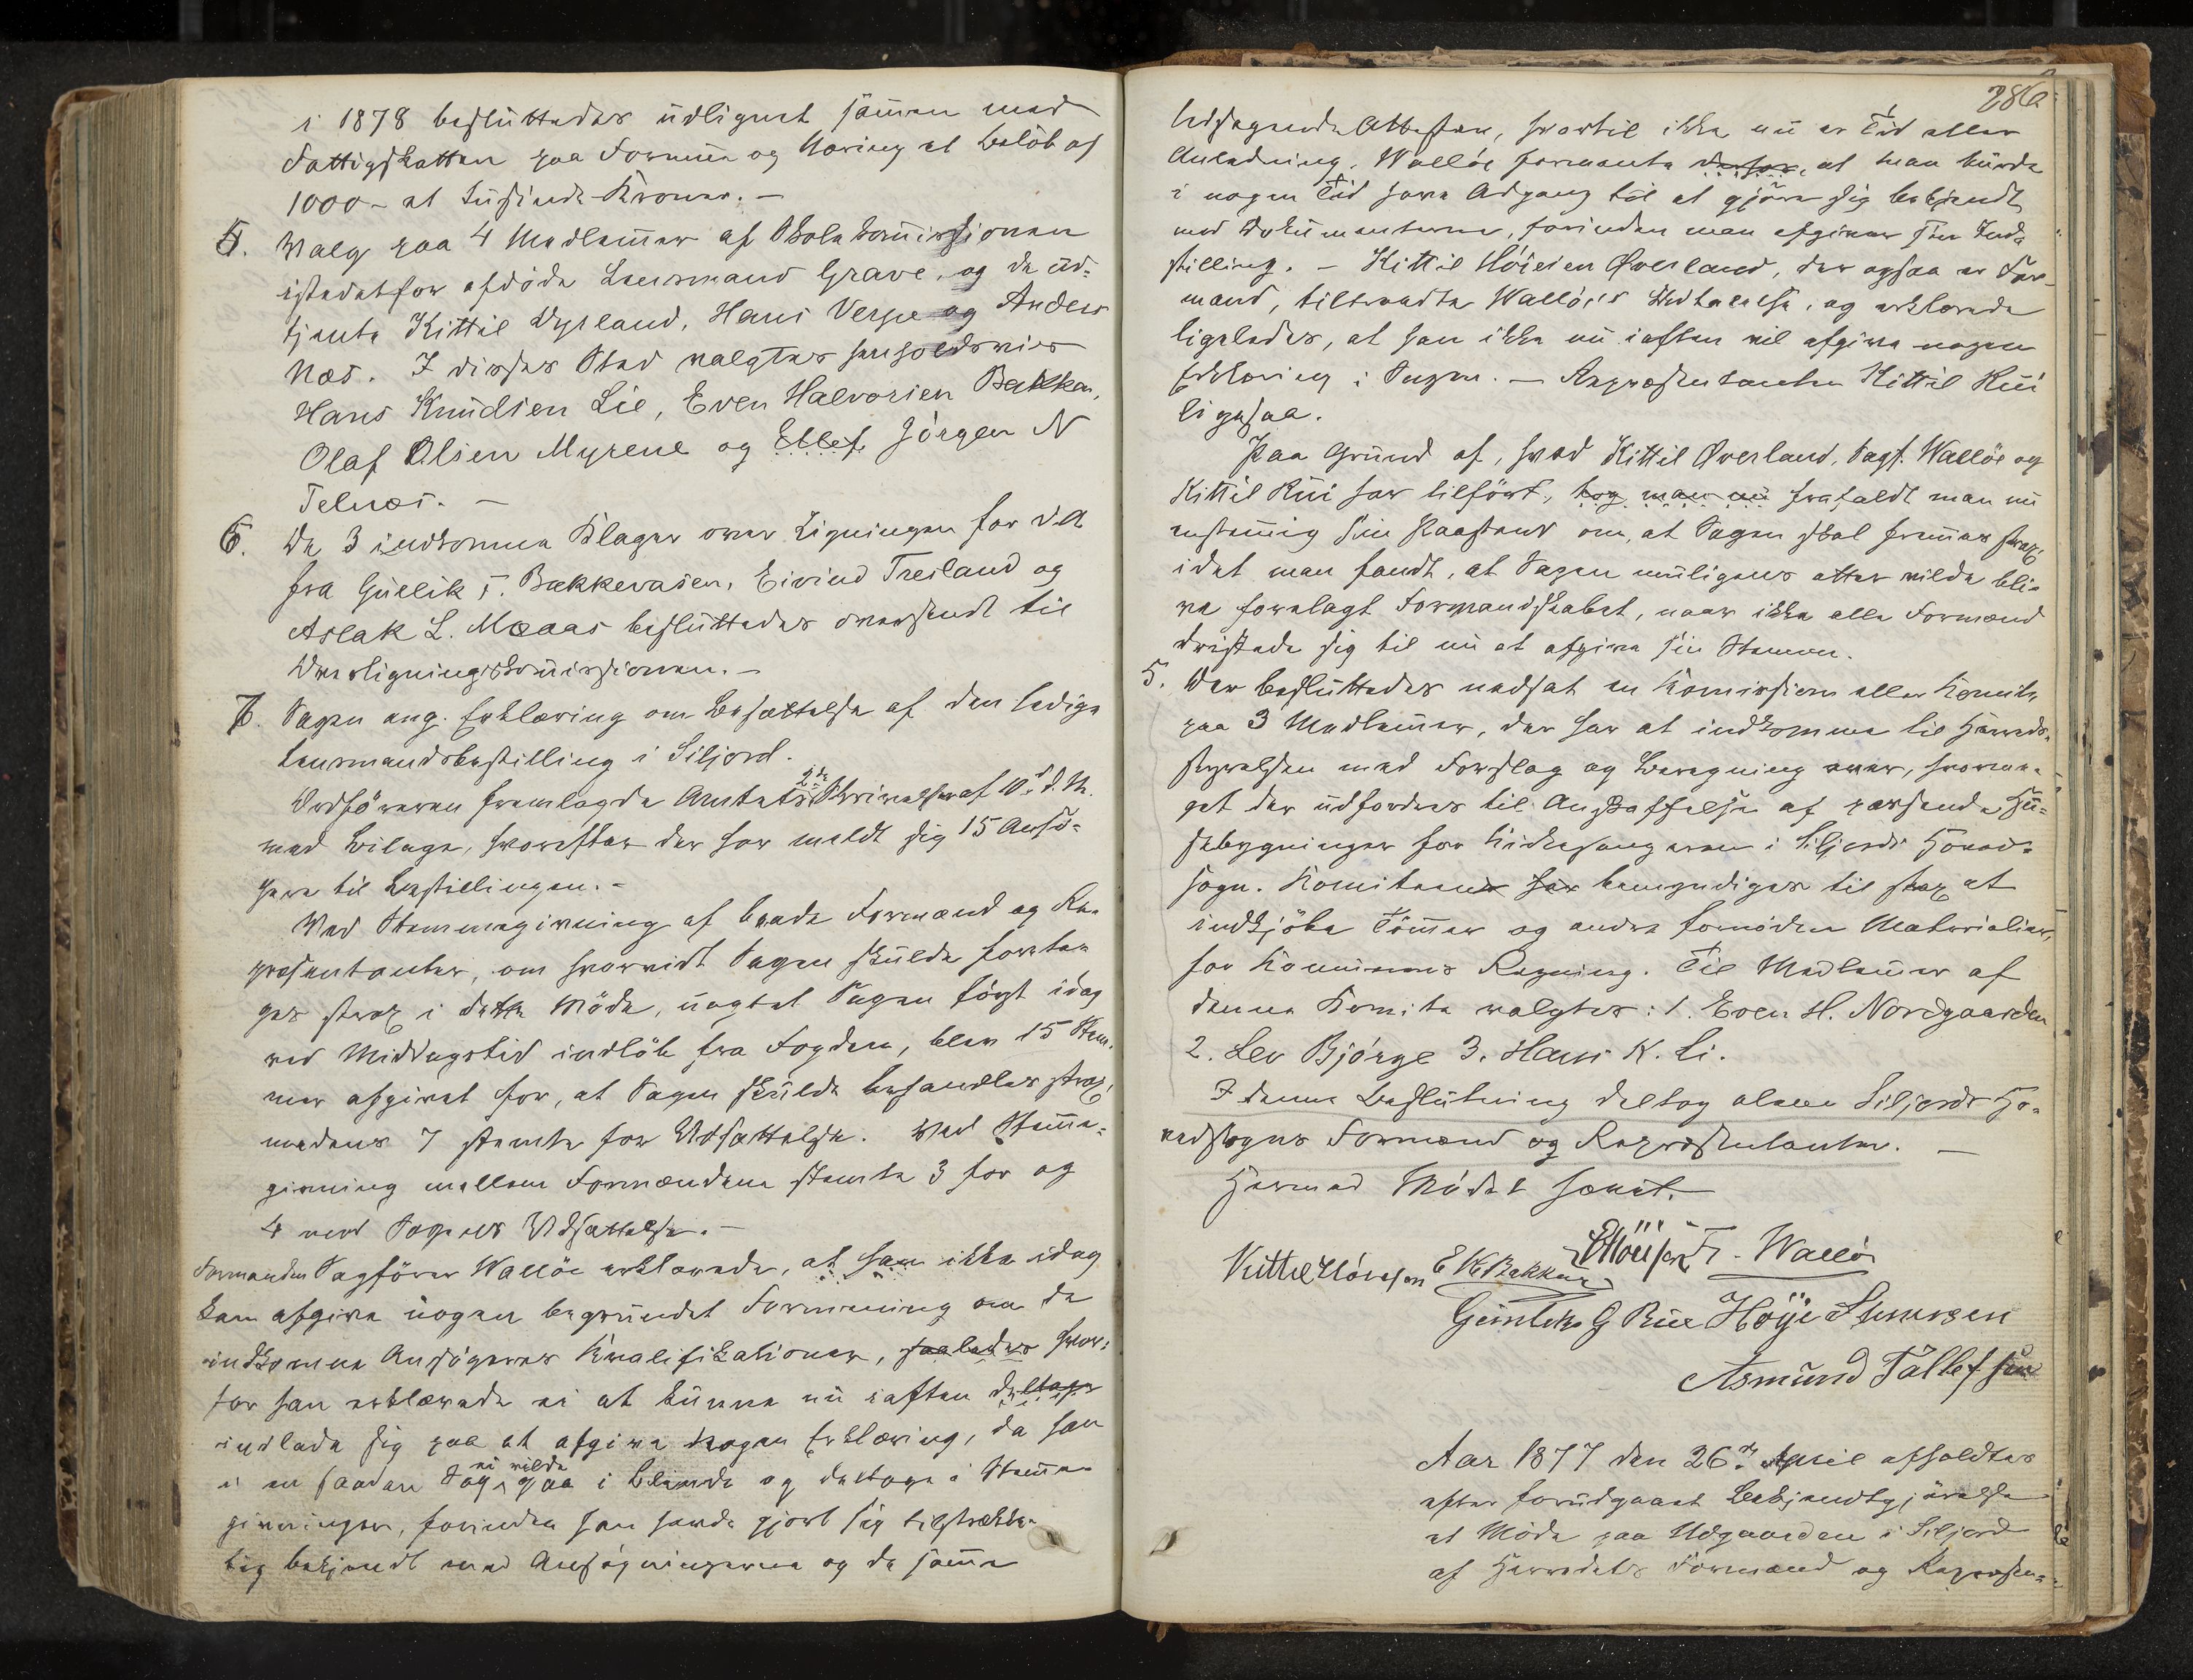 i 1878 besluttedes udlignet sammen med
Fattigskatten paa Formue og Næring et Beløb af
1000 – et tusinde Kroner. –
4. Valg paa 4 Medlemmer af Skolekommissionen
istedetfor afdøde Lensmand Grave, og de ud-
tjente Kittil Dyrland, Hans Verpe og Anders
Næs. I disses Sted valgtes henholdsvis
Hans Knudsen Lie, Even Halvorsen Bakken,
Olaf Olsen Myrene og Ellef Jörgen N
Telnæs. –
6. De 3 indkomne Klager over Ligningen for d.A.
fra Gullik T. Bakkevasen, Eivind Treiland og
Aslak L. Moaas besluttedes oversendt til
Overligningskommissionen. –
7. Sagen ang. Erklæring om Besættelse af den ledige
Lensmandsbestilling i Siljord.
Ordföreren fremlagde Amtets 2de Skrivelser af 10de d.M.
med Bilage, hvorefter der har meldt sig 15 Ansö-
gere til Bestillingen. –
Ved Stemmegivning af baade Formænd og Re-
præsentanter, om hvorvidt Sagen skulde foreta-
ges strax i dette Möde, uagtet Sagen först idag
ved Middagstid indlöb fra Fogden, blev 15 Stem-
mer afgivet for, at Sagen skulde behandles strax,
medens 7 stemte for Udsættelse. Ved Stemme-
givning mellem Formændene stemte 3 for og
4 mod Sagens Udsættelse. –
Formanden Sagförer Wallöe erklærede, at han ikke idag
kan afgive nogen begrundet Formening om de
indkomne Ansögeres Kvalifikationer, saaledes hvor-
for han erklærede ei at kunne nu iaften deltage
indlade sig paa at afgive nogen Erklæring, da han
i en saadan Sag ei vilde gaa i Blinde og deltage i Stemme-
givningen, forinden han havde gjort sig tilstrække-
lig bekjendt med Ansögningerne og de samme
286
ledsagende Attester, hvortil ikke nu er Tid eller
Anledning. Wallöe formente derfor, at man burde
i nogen Tid have Adgang til at gjöre sig bekjendt
med Dokumenterne, forinden man afgiver sin Ind-
stilling. – Kittil Höiesen Øverland, der ogsaa er For-
mand, tiltraadte Wallöes Udtalelse, og erklærede
ligeledes, at han ikke nu iaften vil afgive nogen
Erklæring i Sagen. – Repræsentanten Kittil Rui
ligesaa.
Paa Grund af, hvad Kittil Øverland, Sagf. Wallöe og
Kittil Rui har tilfört, tog man nu frafaldt man nu
enstemmig sin Paastand om, at Sagen skal fremmes strax,
idet man fandt, at Sagen muligens atter vilde bli-
ve forelagt Formandskabet, naar ikke alle Formænd
dristede sig til nu at afgive sin Stemme.
5. Der besluttedes nedsat en Kommission eller Komite
paa 3 Medlemmer, der har at indkomme til Herreds-
styrelsen med Forslag og Beregning over, hvorme-
get der udfordres til Anskaffelse af passende Hu-
sebygninger for Kirkesangeren i Siljords Hoved-
sogn. Komiteen har bemyndiges til strax at
indkjöbe Tömmer og andre fornödne Materialier,
for Kommunens Regning. Til Medlemmer af
denne Komite valgtes: 1. Even H. Nordgaarden
2. Lev Bjørge 3. Hans K. Li.
I denne Beslutning deltog alene Siljords Ho-
vedsogns Formænd og Repræsentanter. –
Hermed Mödet hævet.
F. Wallö
Kittil Höiesen E K Bakken
G Rui Höye
Asmund Tallefsen
Aar 1877 den 26de April afholdtes
efter forudgaaet Bekjendtgjörelse
et Möde paa Utgaarden i Siljord
af Herredets Formænd og Repræsen-